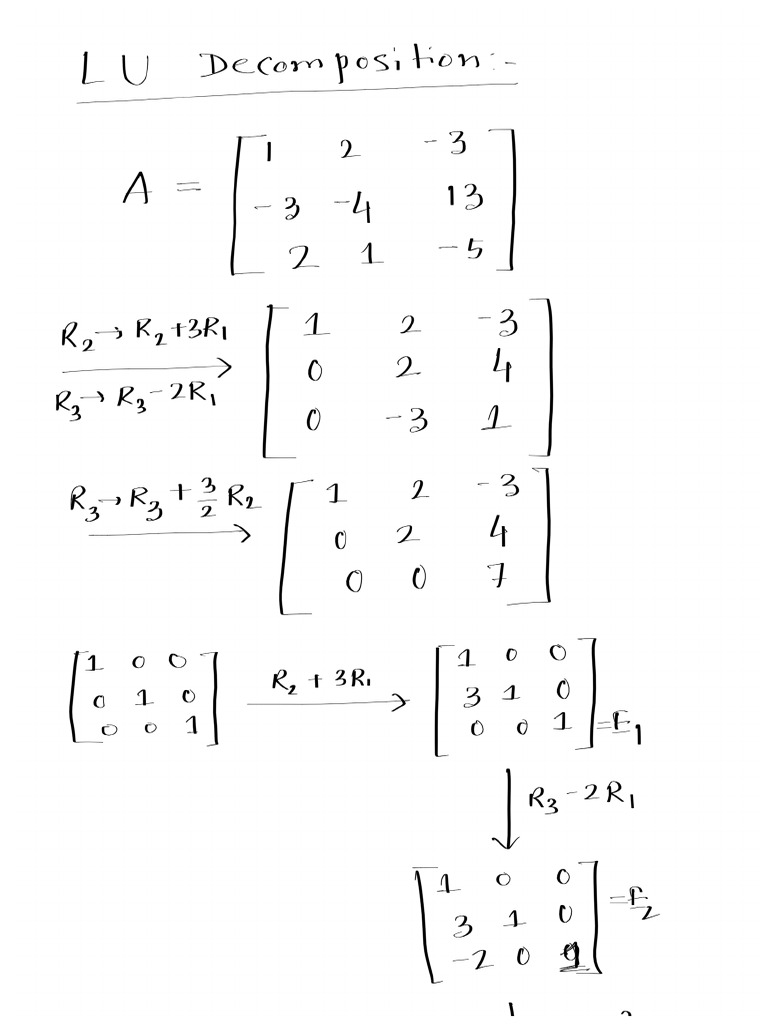 LU Decomposition:-
A = [ 1 2 -3
-3 -4 13
2 1 -5 ]
R2→R2+3R1
R3→R3-2R1
[ 1 2 -3
0 2 4
0 -3 1 ]
R3→R3+3/2 R2
[ 1 2 -3
0 2 4
0 0 7 ]
[ 1 0 0
0 1 0
0 0 1 ]
R2 + 3R1
[ 1 0 0
3 1 0
0 0 1 ] =E1
R3 -2R1
[ 1 0 0
3 1 0
-2 0 1 ] =E2